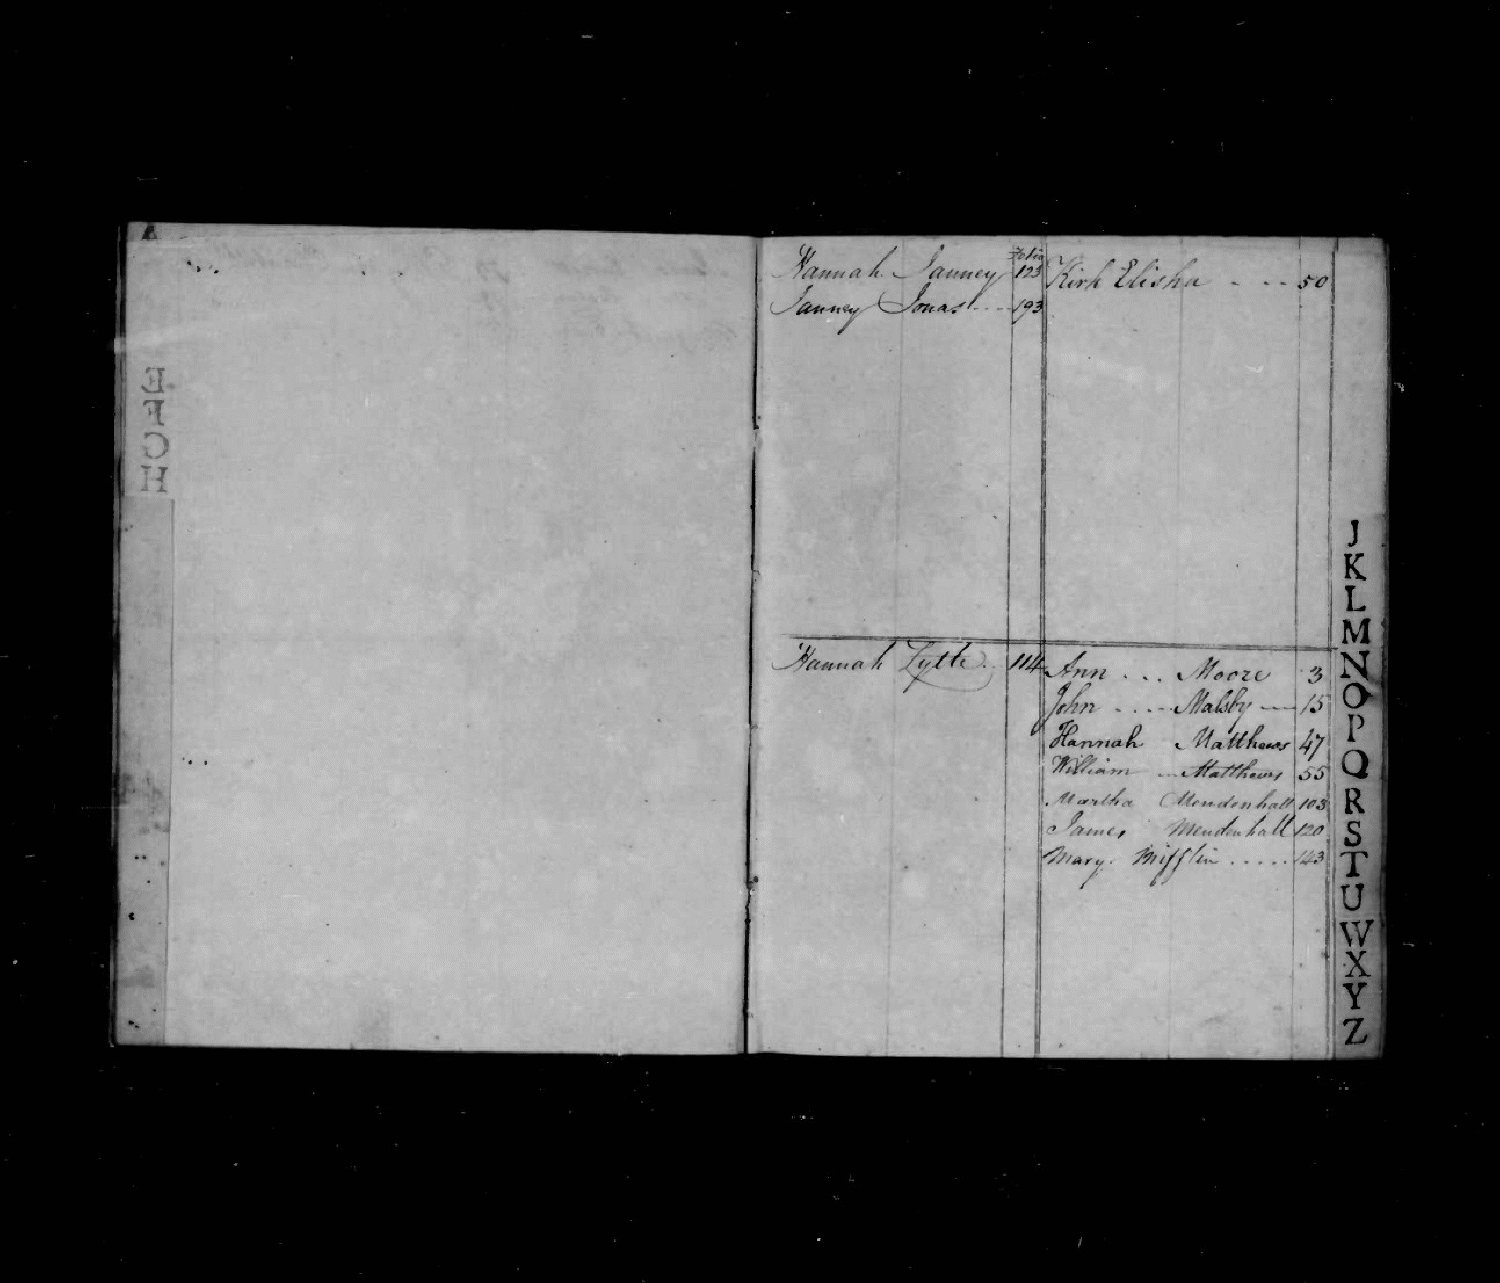 E
F
G
H
Folio
Hannah Janney 123
Janney Jonas .... 193
Kirk Elisha .... 50
Hannah Lytle .. 114
Ann ... Moore 3
John ..... Malsby — 15
Hannah Matthews 47
William ... Matthews 55
Martha Mendenhall 103
James Mendenhall 120
Mary Mifflin ..... 143
J
K
L
M
N
O
P
Q
R
S
T
U
W
X
Y
Z